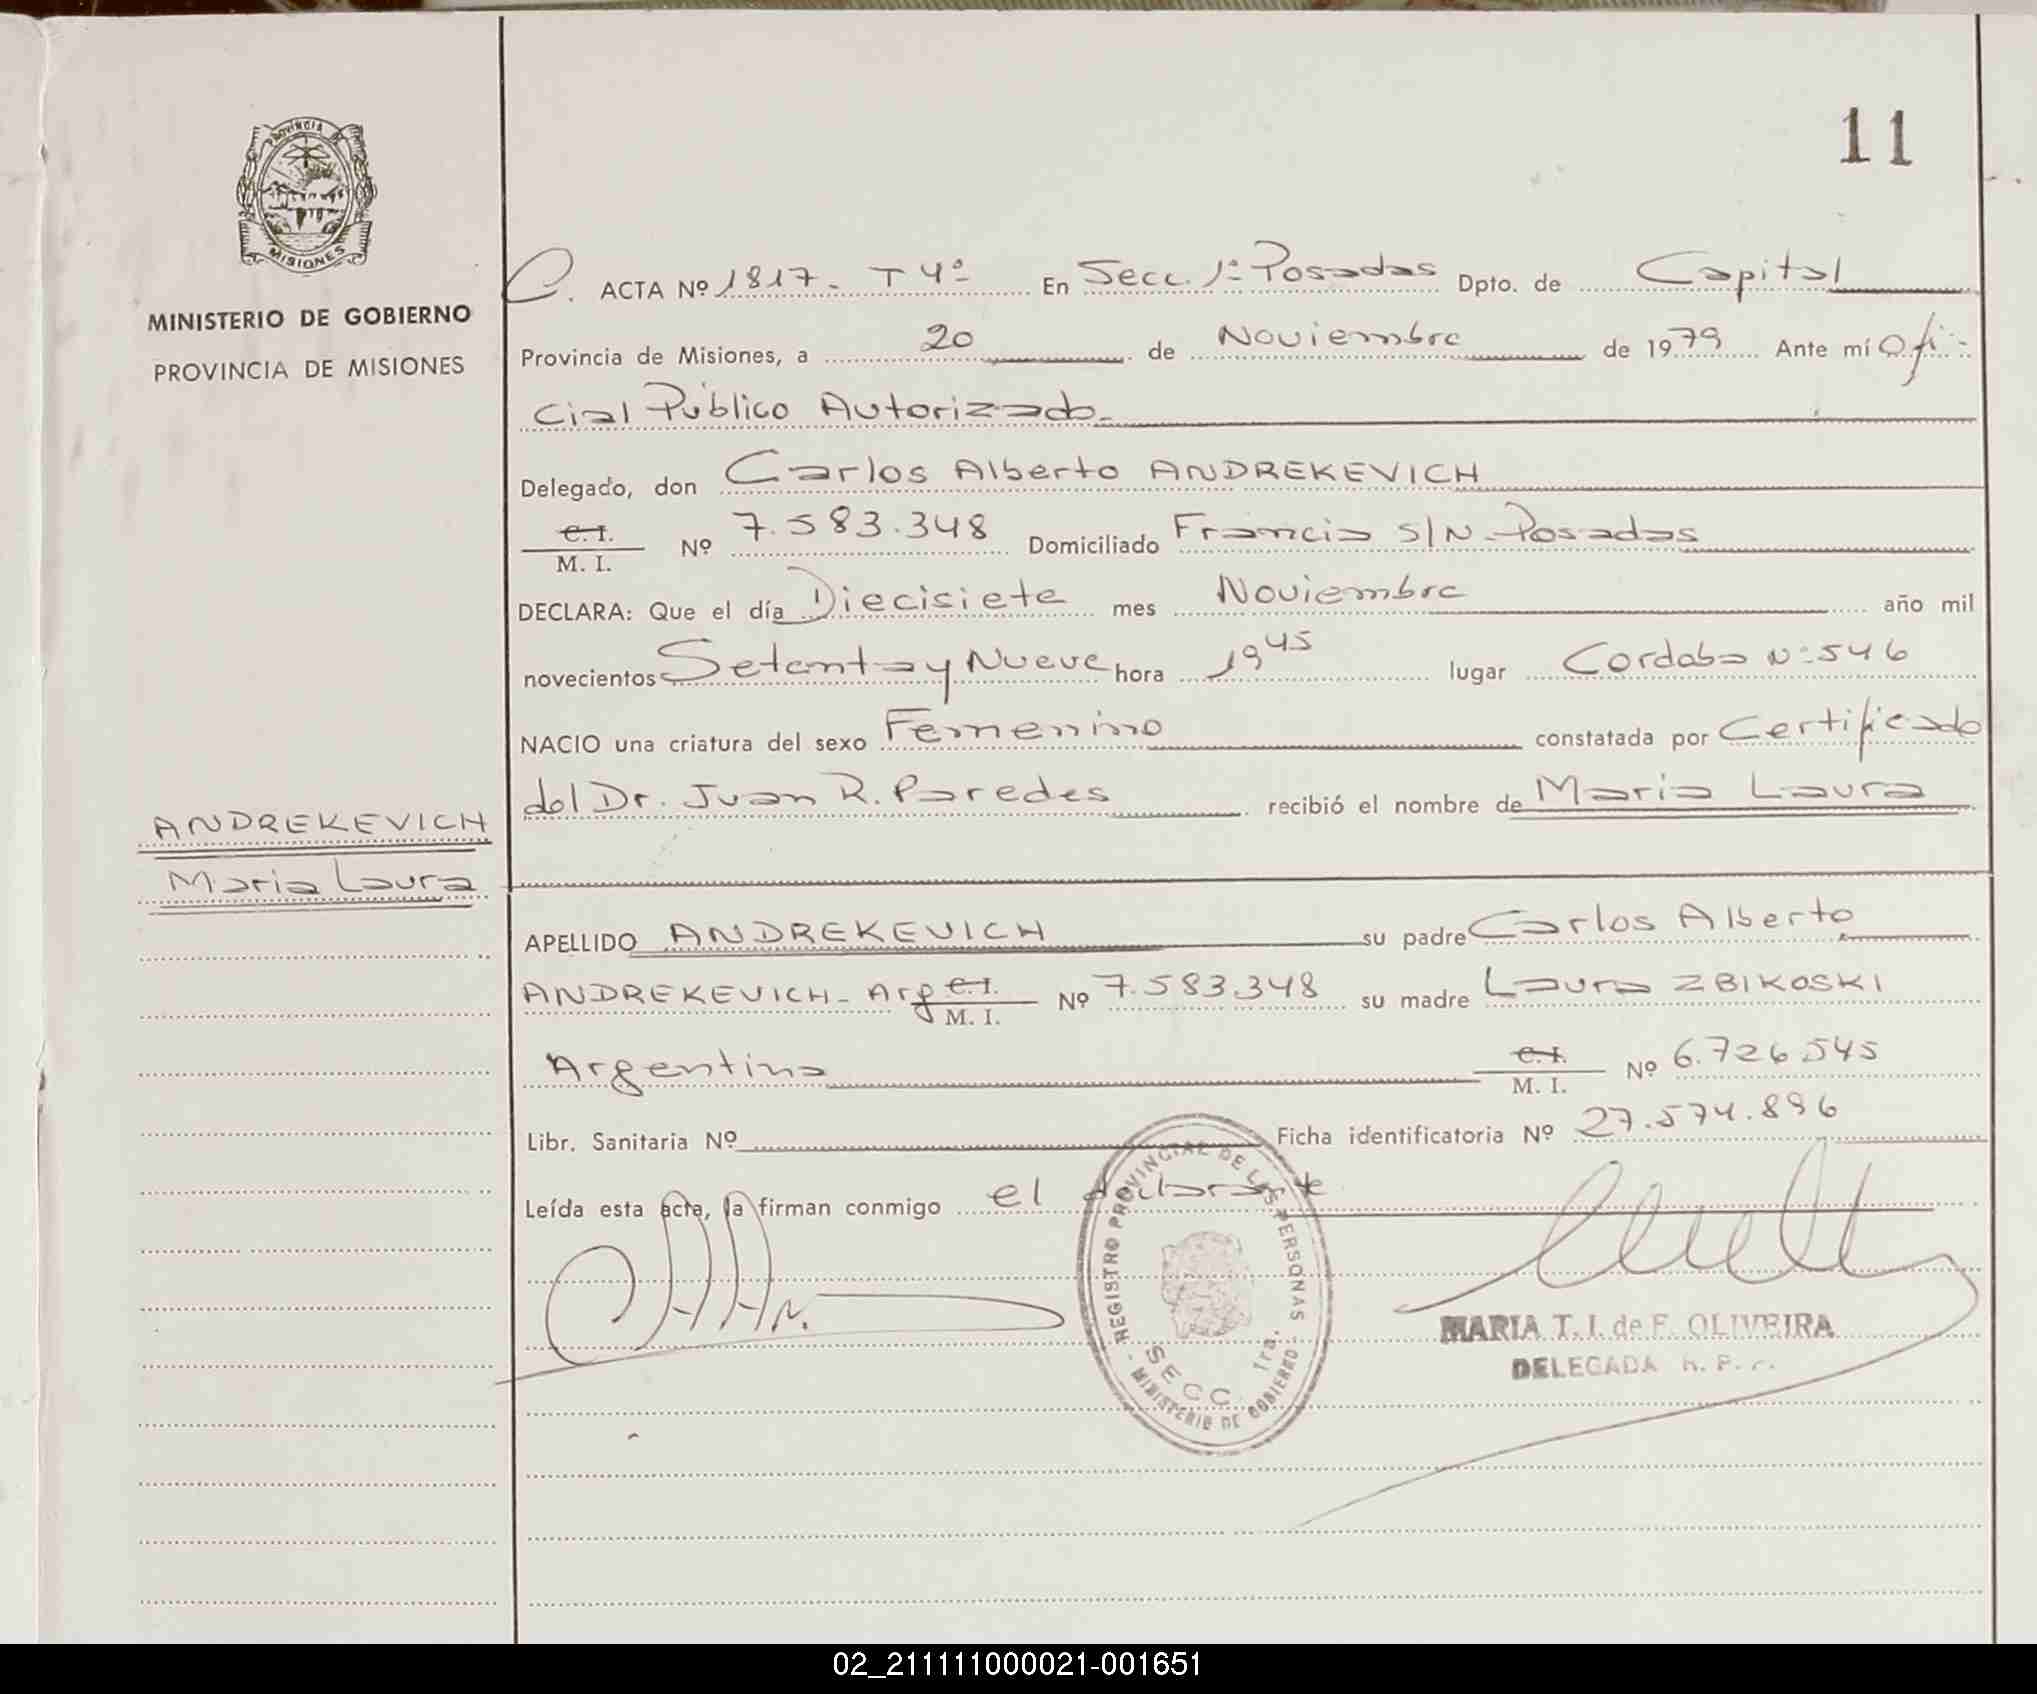 11
PROVINCIA DE
MISIONES
MINISTERIO DE GOBIERNO
PROVINCIA DE MISIONES
C. ACTA Nº 1817 - T 4º En Secc. 1ª Posadas Dpto. de Capital
Provincia de Misiones, a 20 de Noviembre de 1979 Ante mí Ofi-
cial Público Autorizado-
Delegado, don Carlos Alberto ANDREKEVICH
C. I.
M. I. Nº 7.583.348 Domiciliado Francia S/N - Posadas
DECLARA: Que el día Diecisiete mes Noviembre año mil
novecientos Setenta y Nueve hora 19 45 lugar Cordoba Nº 546
NACIO una criatura del sexo Femenino constatada por Certificado
del Dr. Juan R. Paredes recibió el nombre de Maria Laura
ANDREKEVICH
Maria Laura
APELLIDO ANDREKEVICH su padre Carlos Alberto
ANDREKEVICH - Arg C. I.
M. I. Nº 7.583.348 su madre Laura ZBIKOSKI
Argentina C. I.
M. I. Nº 6.726.545
Libr. Sanitaria Nº Ficha identificatoria Nº 27.574.896
Leída esta acta, la firman conmigo el declarante
REGISTRO PROVINCIAL DE LAS PERSONAS
SECC. 1ra.
- MINISTERIO DE GOBIERNO -
MARIA T. I. de F. OLIVEIRA
DELEGADA R. P.
02_211111000021-001651